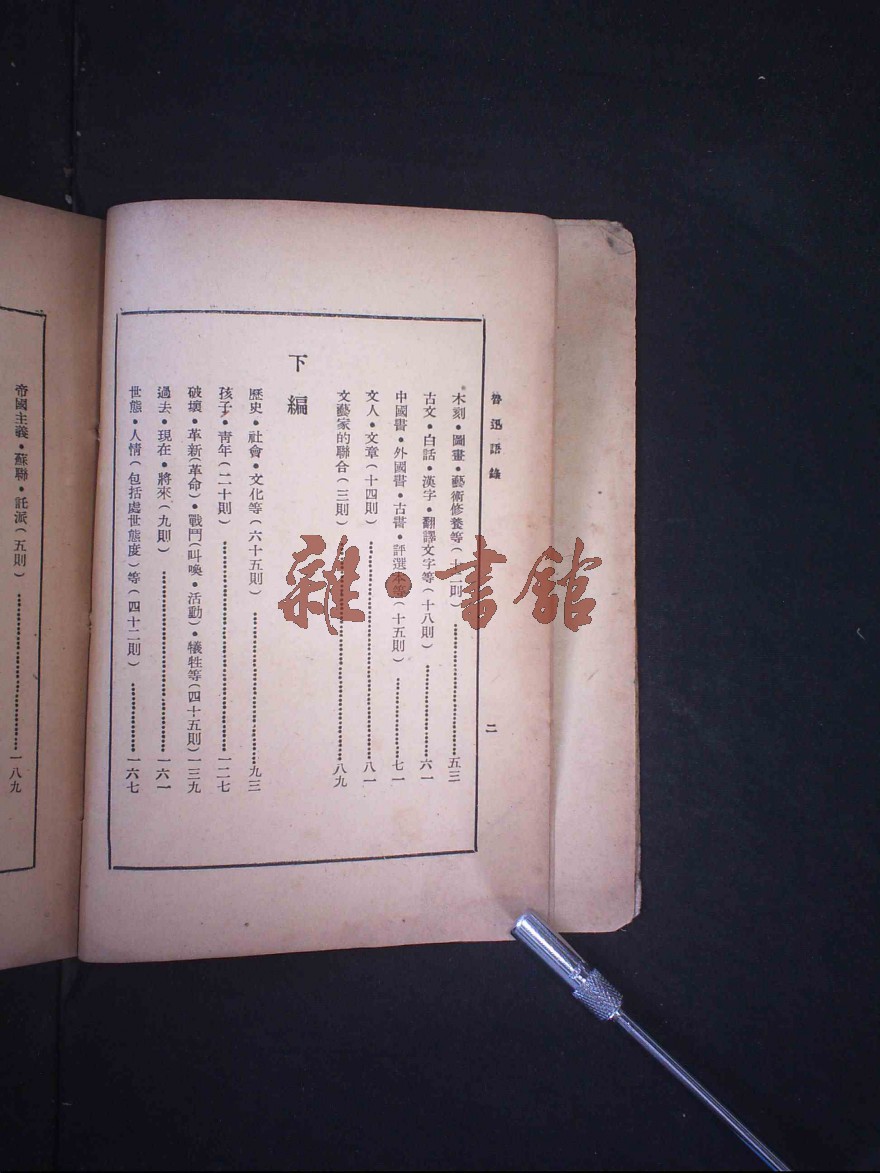 魯迅語錄
二
木刻•圖畫•藝術修養等(十二則)……五三
古文•白話•漢字•翻譯文字等(十八則)……六一
中國書•外國書•古書•評選本等(十五則)……七一
文人•文章(十四則)……八一
文藝家的聯合(三則)……八九
下編
歷史•社會•文化等(六十五則)……九三
孩子•青年(二十則)……一二七
破壞•革新(革命)•戰鬥(叫喚•活動)•犧牲等(四十五則)一三九
過去•現在•將來(九則)……一六一
世態•人情(包括處世態度)等(四十二則)……一六七
帝國主義•蘇聯•託派(五則)……一八九
雜•書館